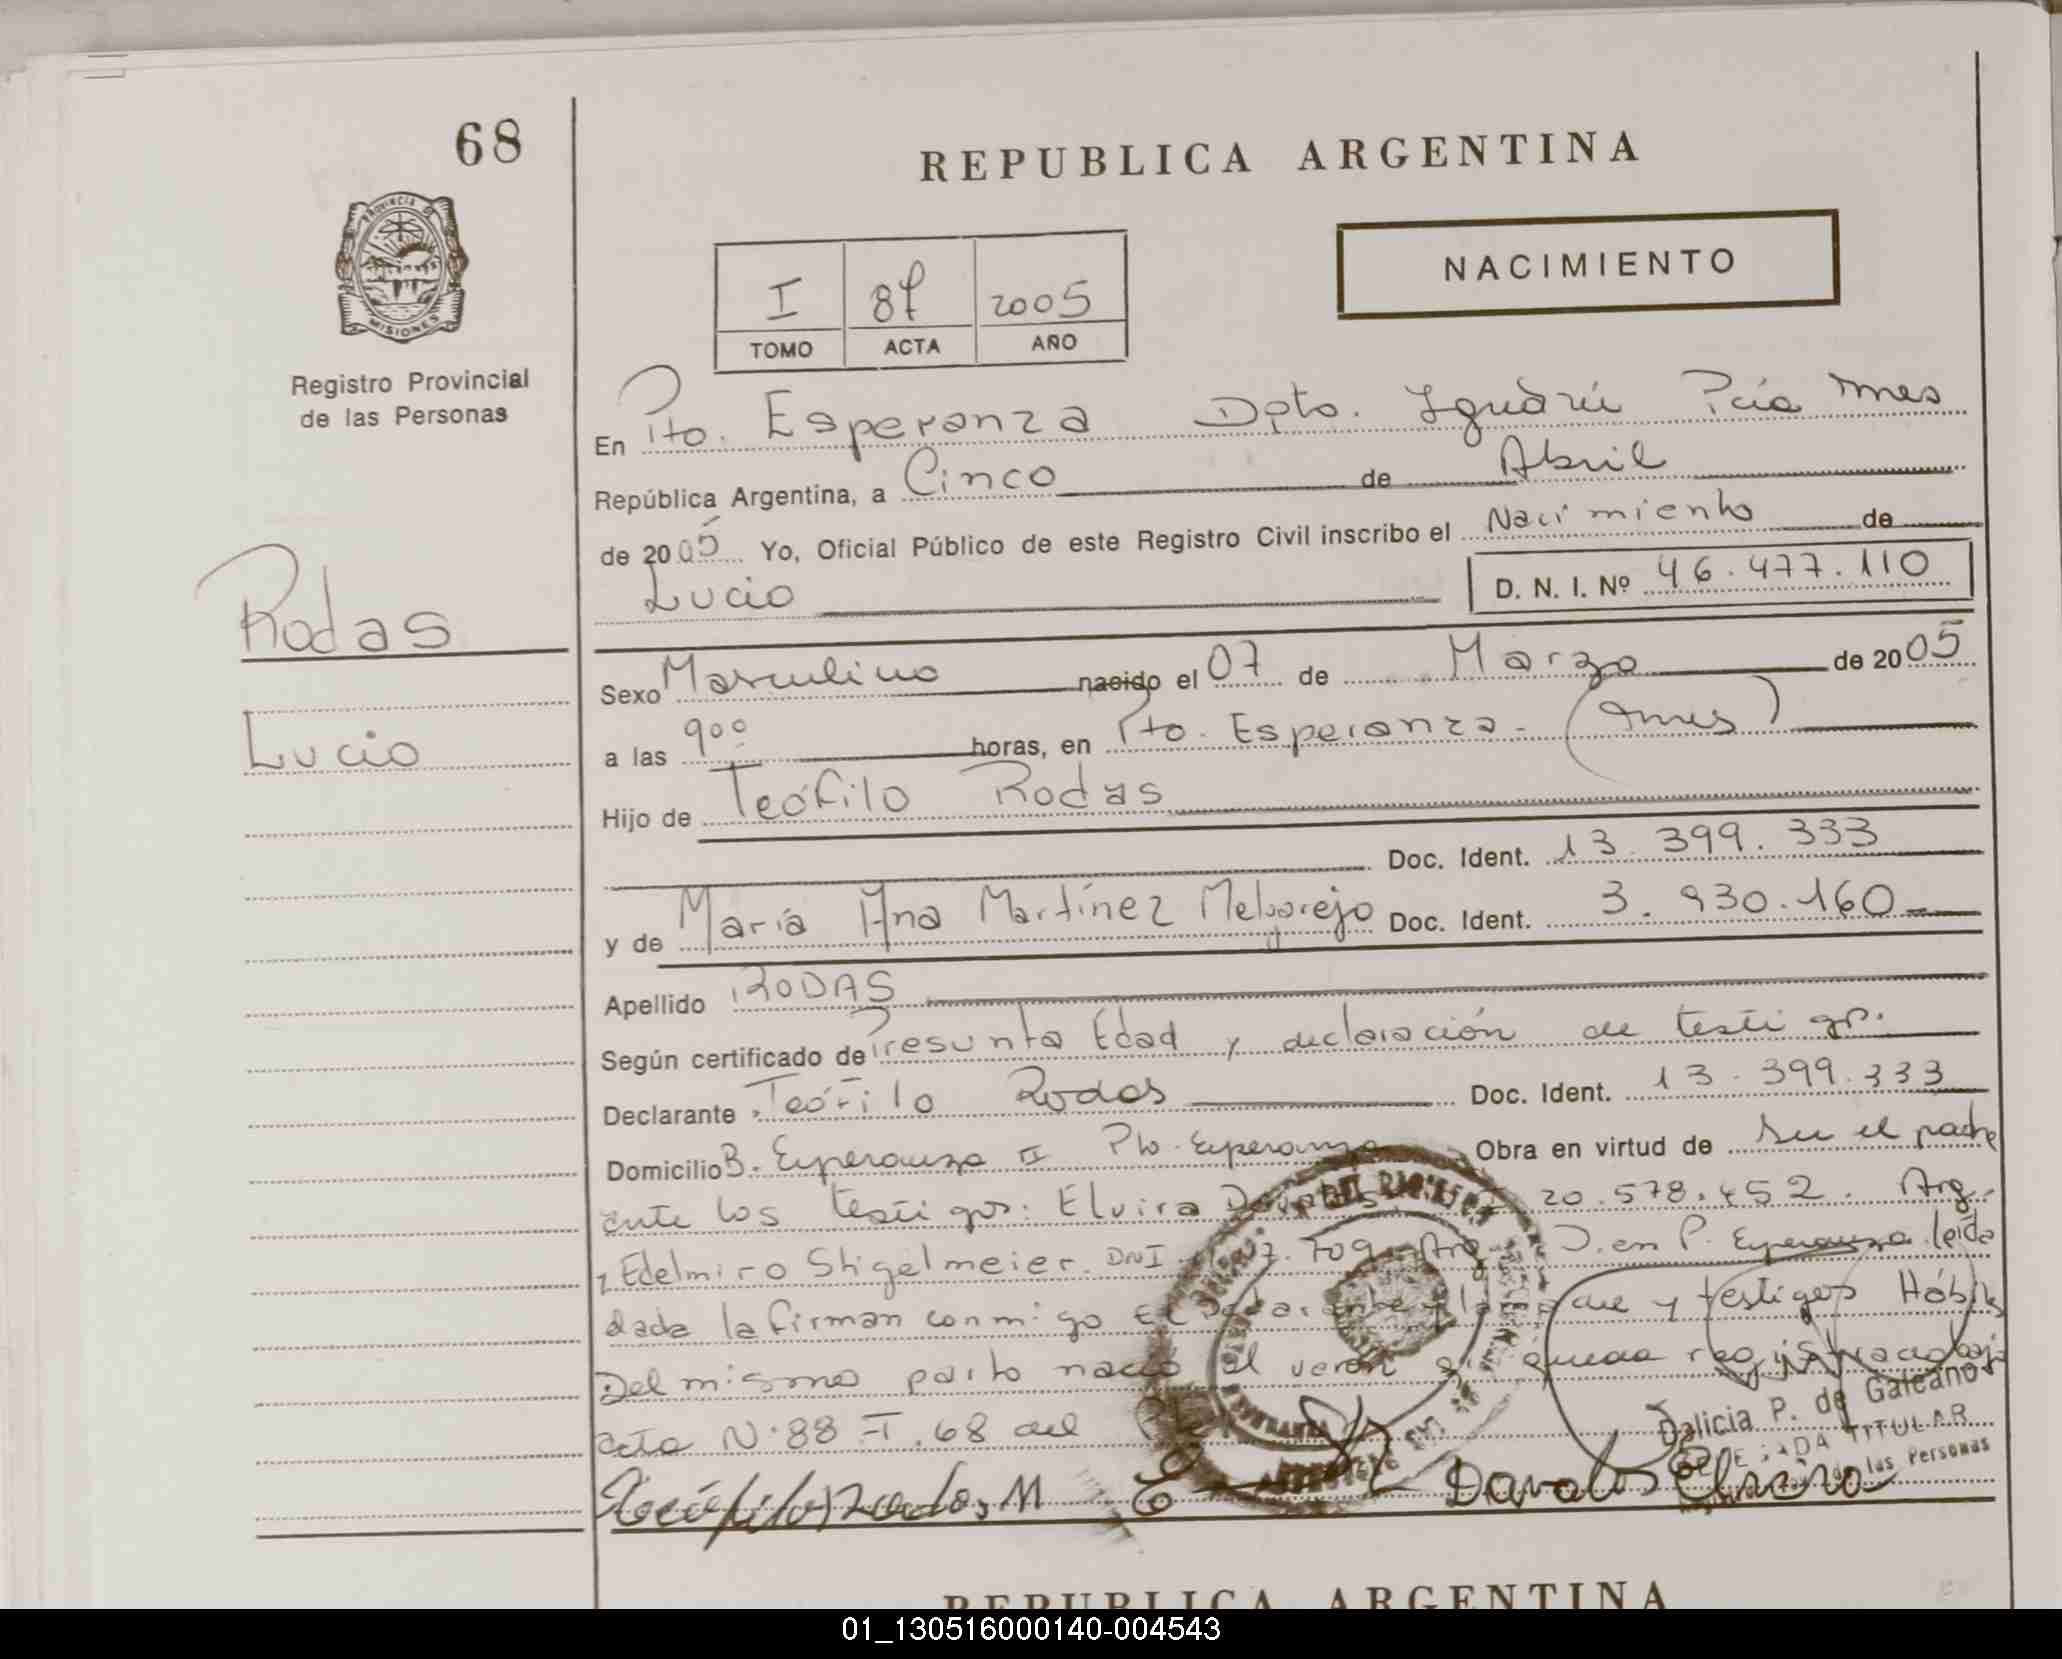 68
REPUBLICA ARGENTINA
PROVINCIA DE
MISIONES
Registro Provincial
de las Personas
NACIMIENTO
I 87 2005
TOMO ACTA AÑO
En Pto. Esperanza Dpto. Iguazú Pcia Mnes
República Argentina, a Cinco de Abril
de 2005 Yo, Oficial Público de este Registro Civil inscribo el Nacimiento de
Lucio D. N. I. Nº 46.477.110
Rodas
Lucio
Sexo Masculino nacido el 07 de Marzo de 2005
a las 9 00 horas, en Pto. Esperanza - (Mnes)
Hijo de Teófilo Rodas
Doc. Ident. 13.399.333
y de María Ana Martínez Melgarejo Doc. Ident. 3.930.160
Apellido RODAS
Según certificado de Presunta Edad y declaración de testigos.
Declarante Teófilo Rodas Doc. Ident. 13.399.333
Domicilio B. Esperanza II Pto. Esperanza Obra en virtud de ser el padre
ante los testigos: Elvira 20.578.452. Arg.
y Edelmiro Stigelmeier. DNI 709 Arg D. en P. Esperanza leída
dada la firman conmigo el Declarante y testigos Hábiles
Del mismo parto nació el queda registrado bajo
acta Nº 88 T I. 68 del
Dalicia P. de Galeano
TITULAR
de las Personas
Teófilo Rodas M Davalos Elvira
REPUBLICA ARGENTINA
01_130516000140-004543